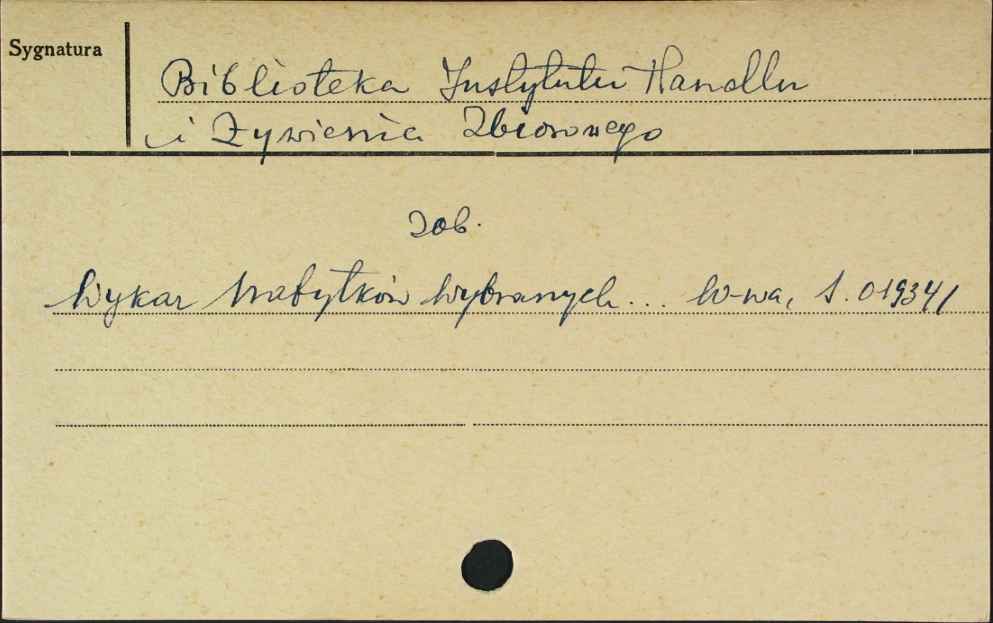 Sygnatura
Biblioteka Instytutu Handlu
i Żywienia Zbiorowego
Zob.
Wykaz Nabytków Wybranych... W-wa, S. 01934/